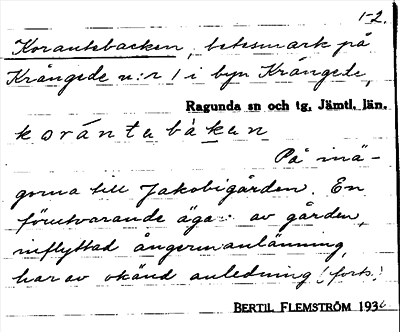 1-2.
Korantebacken, betesmark på
Krångede n:r 1 i byn Krångede,
Ragunda sn och tg, Jämtl. län.
korántabàken
På inä-
gorna till Jakobigården. En
förevarande äga- av gården,
inflyttad ångermanlänning,
har av okänd anledning (forts.)
BERTIL FLEMSTRÖM 1936